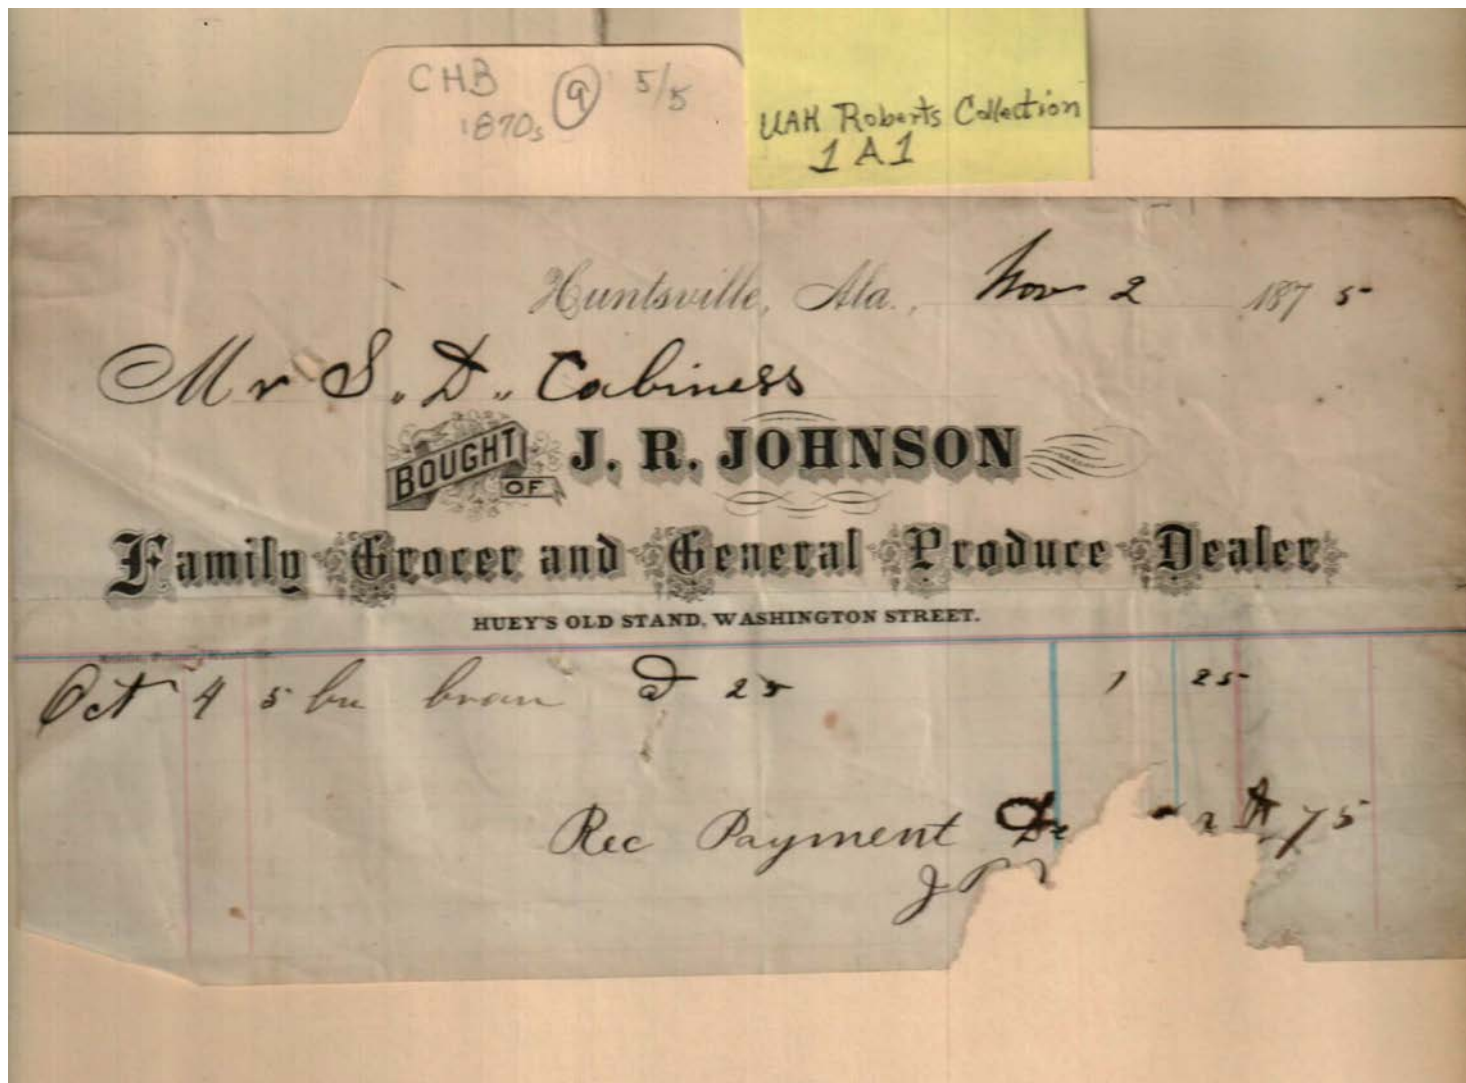 CHB 9 5/5
1870s
UAH Roberts Collection
1 A 1
Huntsville, Ala., Nov 2 1875
Mr S. D. Cabiness
BOUGHT OF J. R. JOHNSON
Family Grocer and General Produce Dealer
HUEY'S OLD STAND, WASHINGTON STREET.
Oct 4 5 bu bran @ 25 1 25
Rec Payment 75
J